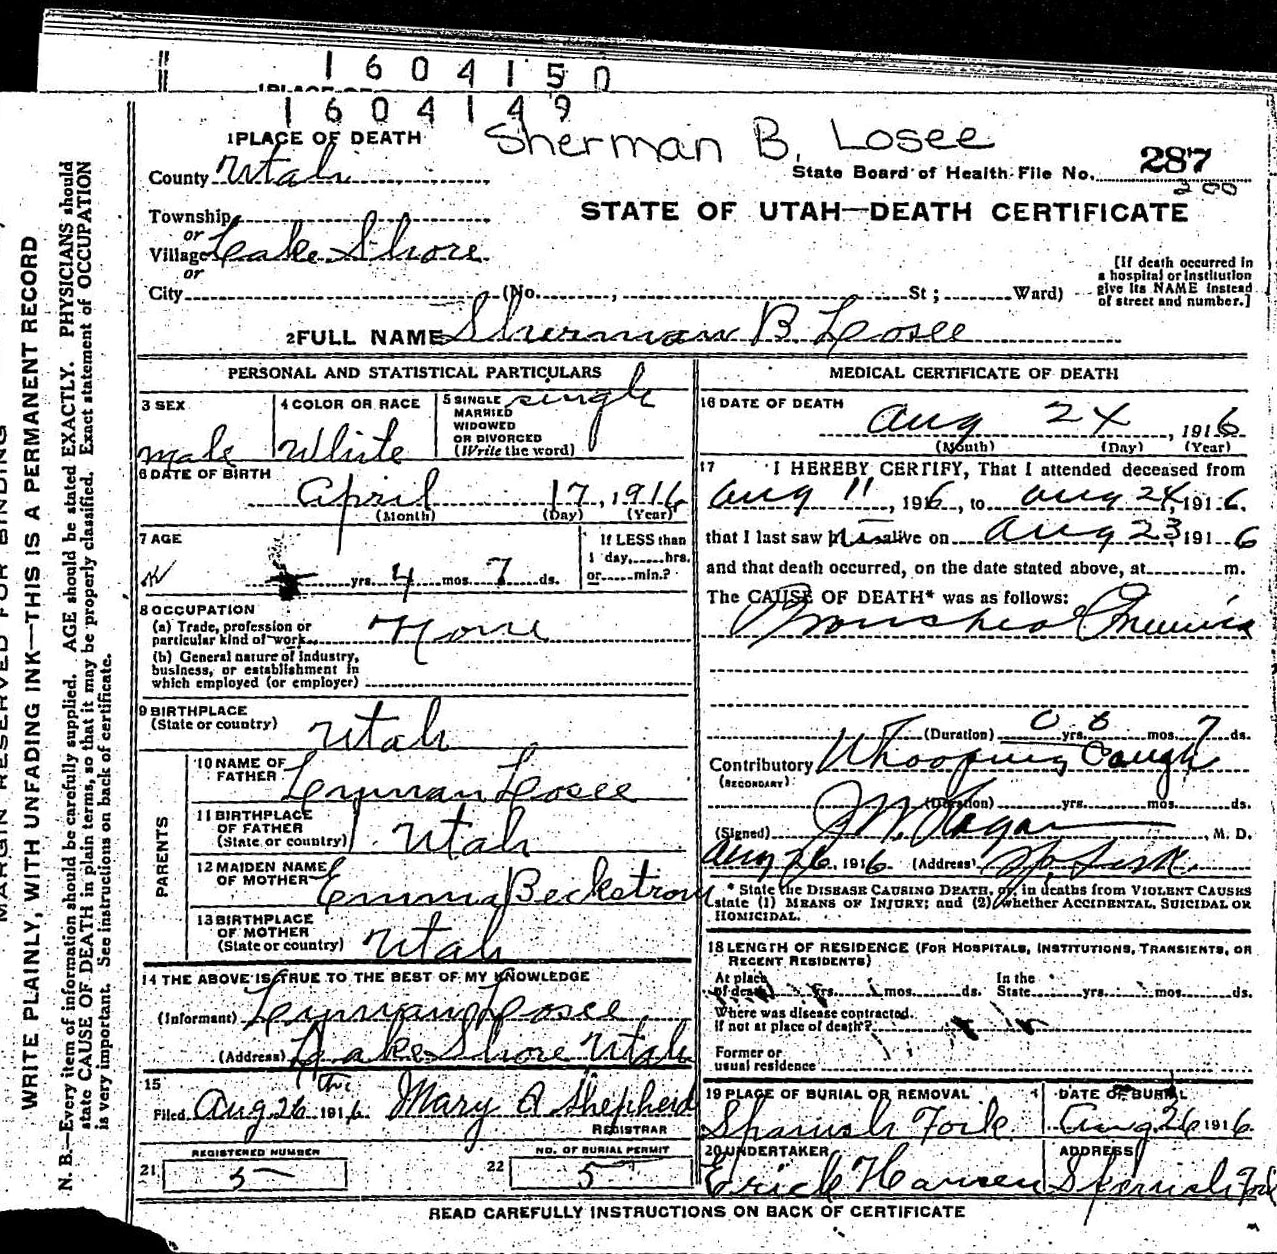 1604150
1604149
Sherman B. Losee
1 PLACE OF DEATH
State Board of Health File No. 287
200
County Utah
STATE OF UTAH—DEATH CERTIFICATE
Township
or
Village Lake Shore
or
City (No. , St ; Ward)
[If death occurred in
a hospital or institution
give its NAME instead
of street and number.]
2 FULL NAME Sherman B. Losee
PERSONAL AND STATISTICAL PARTICULARS
3 SEX
male
4 COLOR OR RACE
White
5 SINGLE
MARRIED
WIDOWED
OR DIVORCED
(Write the word)
single
6 DATE OF BIRTH
April 17, 1916
(Month) (Day) (Year)
7 AGE
yrs. 4 mos. 7 ds.
If LESS than
1 day, hrs.
or min.?
8 OCCUPATION
(a) Trade, profession or
particular kind of work None
(b) General nature of industry,
business, or establishment in
which employed (or employer)
9 BIRTHPLACE
(State or country) Utah
PARENTS
10 NAME OF
FATHER Lyman Losee
11 BIRTHPLACE
OF FATHER
(State or country) Utah
12 MAIDEN NAME
OF MOTHER Emma Beckstrom
13 BIRTHPLACE
OF MOTHER
(State or country) Utah
14 THE ABOVE IS TRUE TO THE BEST OF MY KNOWLEDGE
(Informant) Lyman Losee
(Address) Lake Shore Utah
15
Filed Aug 26th 1916 Mary A Shepherd
REGISTRAR
REGISTERED NUMBER
21 5
NO. OF BURIAL PERMIT
22 5
MEDICAL CERTIFICATE OF DEATH
16 DATE OF DEATH
Aug 24, 1916
(Month) (Day) (Year)
17 I HEREBY CERTIFY, That I attended deceased from
Aug 11, 1916, to Aug 24, 1916.
that I last saw him alive on Aug 23, 1916
and that death occurred, on the date stated above, at m.
The CAUSE OF DEATH* was as follows:
(Duration) 0 yrs. 0 mos. 7 ds.
Contributory Whooping Cough
(SECONDARY)
(Duration) yrs. mos. ds.
(Signed) M. D.
Aug 26, 1916 (Address)
* State the DISEASE CAUSING DEATH, or, in deaths from VIOLENT CAUSES
state (1) MEANS OF INJURY; and (2) whether ACCIDENTAL, SUICIDAL OR
HOMICIDAL.
18 LENGTH OF RESIDENCE (FOR HOSPITALS, INSTITUTIONS, TRANSIENTS, OR
RECENT RESIDENTS)
At place
of death yrs. mos. ds.
In the
State yrs. mos. ds.
Where was disease contracted.
If not at place of death?
Former or
usual residence
19 PLACE OF BURIAL OR REMOVAL
Spanish Fork
DATE OF BURIAL
Aug 26 1916.
20 UNDERTAKER
Erick Hansen
ADDRESS
Spanish Fork
READ CAREFULLY INSTRUCTIONS ON BACK OF CERTIFICATE
MARGIN RESERVED FOR BINDING
WRITE PLAINLY, WITH UNFADING INK—THIS IS A PERMANENT RECORD
N. B.—Every item of information should be carefully supplied. AGE should be stated EXACTLY. PHYSICIANS should
state CAUSE OF DEATH in plain terms, so that it may be properly classified. Exact statement of OCCUPATION
is very important. See instructions on back of certificate.